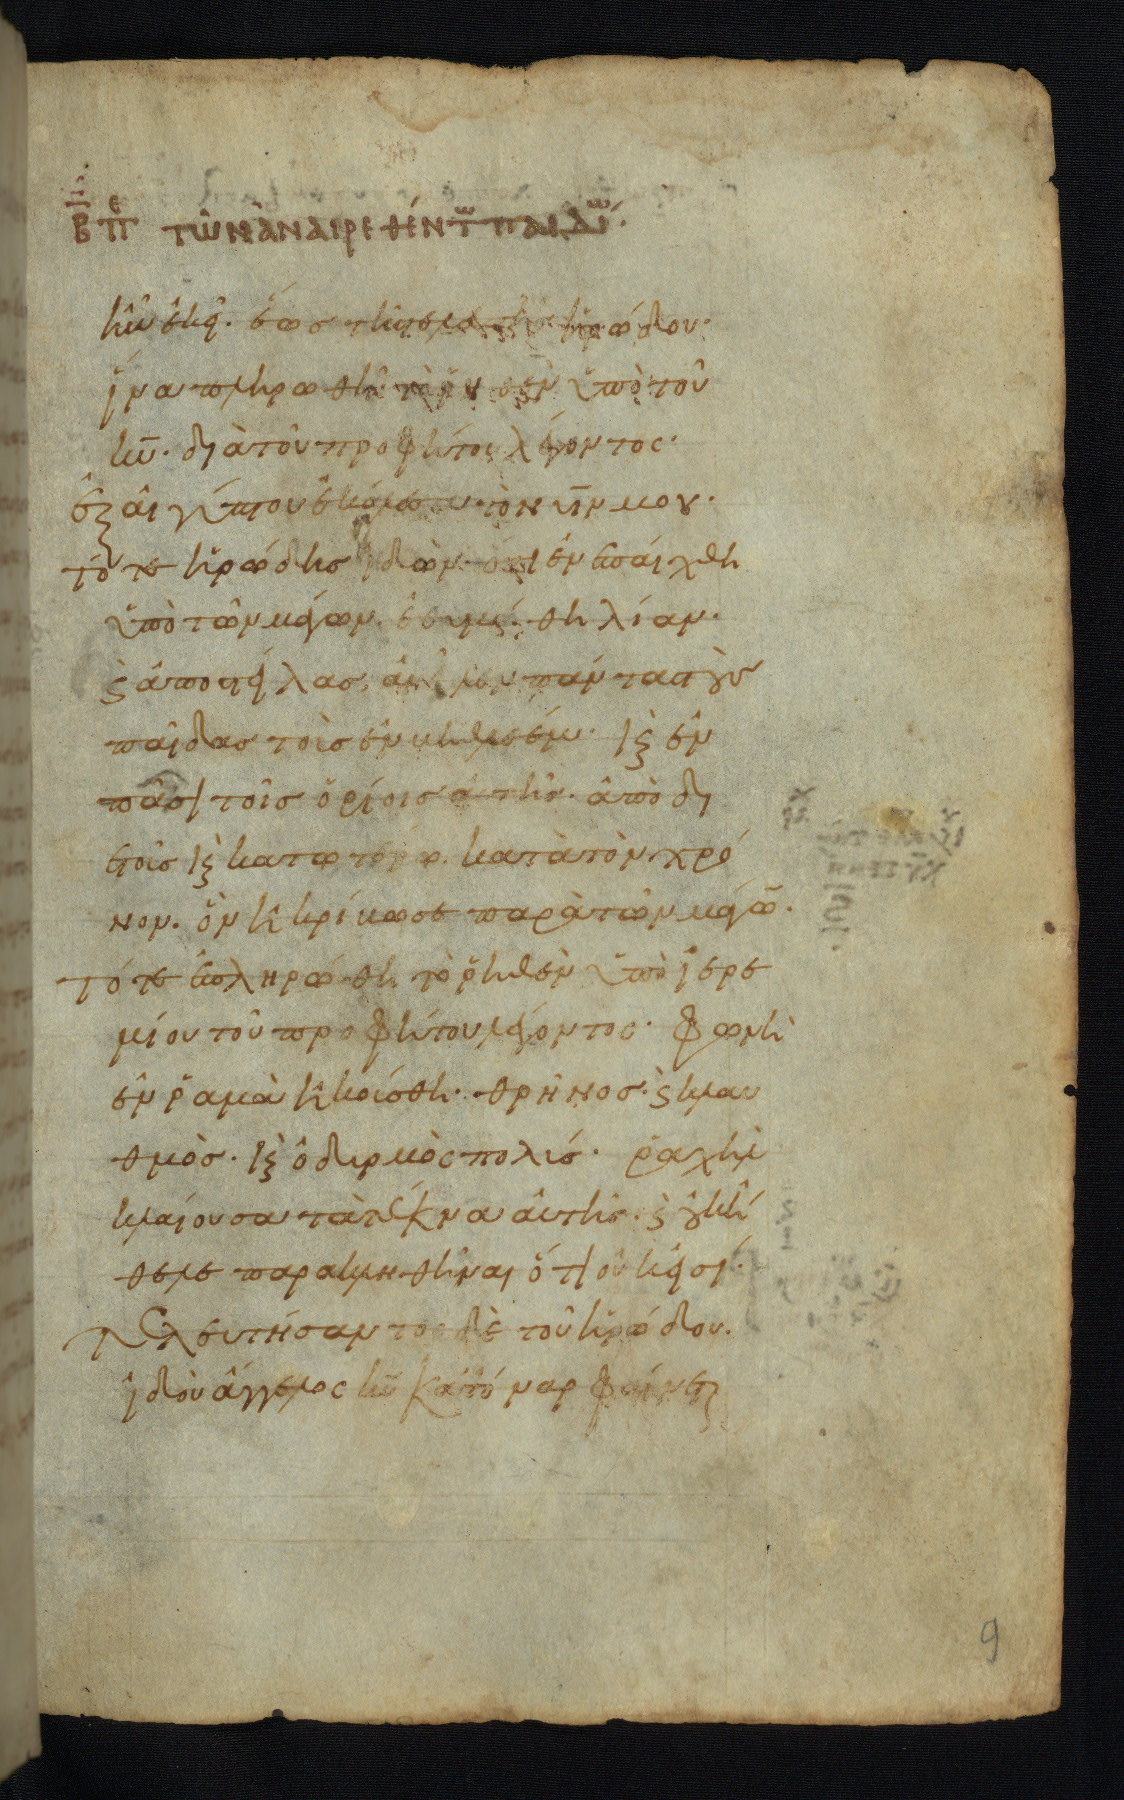 Β̅ Πε τῶν ἀναιρεθέντ̅ω̅ παίδω̅
ἦν ἐκεῖ. ἕως τῆς τελευτῆς ἡρώδου·
ἵνα πληρωθῆ τὸ ῥηθὲν ὑπὸ τοῦ
κ̅υ̅. διὰ τοῦ προφήτου λέγοντος·
ἐξ αἰγύπτου ἐκάλεσα τὸν υ̅ν̅ μου.
τότε ἡρώδης ἰδὼν ὅτι ἐνεπαίχθη
ὑπὸ τῶν μάγων. ἐθυμώθη λίαν.
ϗ ἀποστείλας ἀνεῖλεν πάντας τοὺς
παῖδας τοὺς ἐν βηθλεέμ· ϗ ἐν
πᾶσι τοῖς ὁρίοις αὐτῆς. ἀπὸ δι
ετοῦς ϗ κατωτέρω. κατὰ τὸν χρό
νον. ὃν ἠκρίβωσε παρὰ τῶν μάγω̅.
τότε ἐπληρώθη τὸ ῥηθὲν ὑπὸ ἱερε
μίου τοῦ προφήτου λέγοντος· φωνὴ
ἐν ῥαμὰ ἠκούσθη. θρῆνος ϗ κλαυ
θμὸς. ϗ ὀδυρμὸς πολύς. ῥαχὴλ
κλαίουσα τὰ τέκνα αὐτῆς. ϗ οὐκ ἤ
θελε παρακληθῆναι ὅτι οὐκ εἰσί.
τελευτήσαντος δὲ τοῦ ἡρώδου.
ἰδοὺ ἄγγελος κ̅υ̅ κατόναρ φαίνεται
9